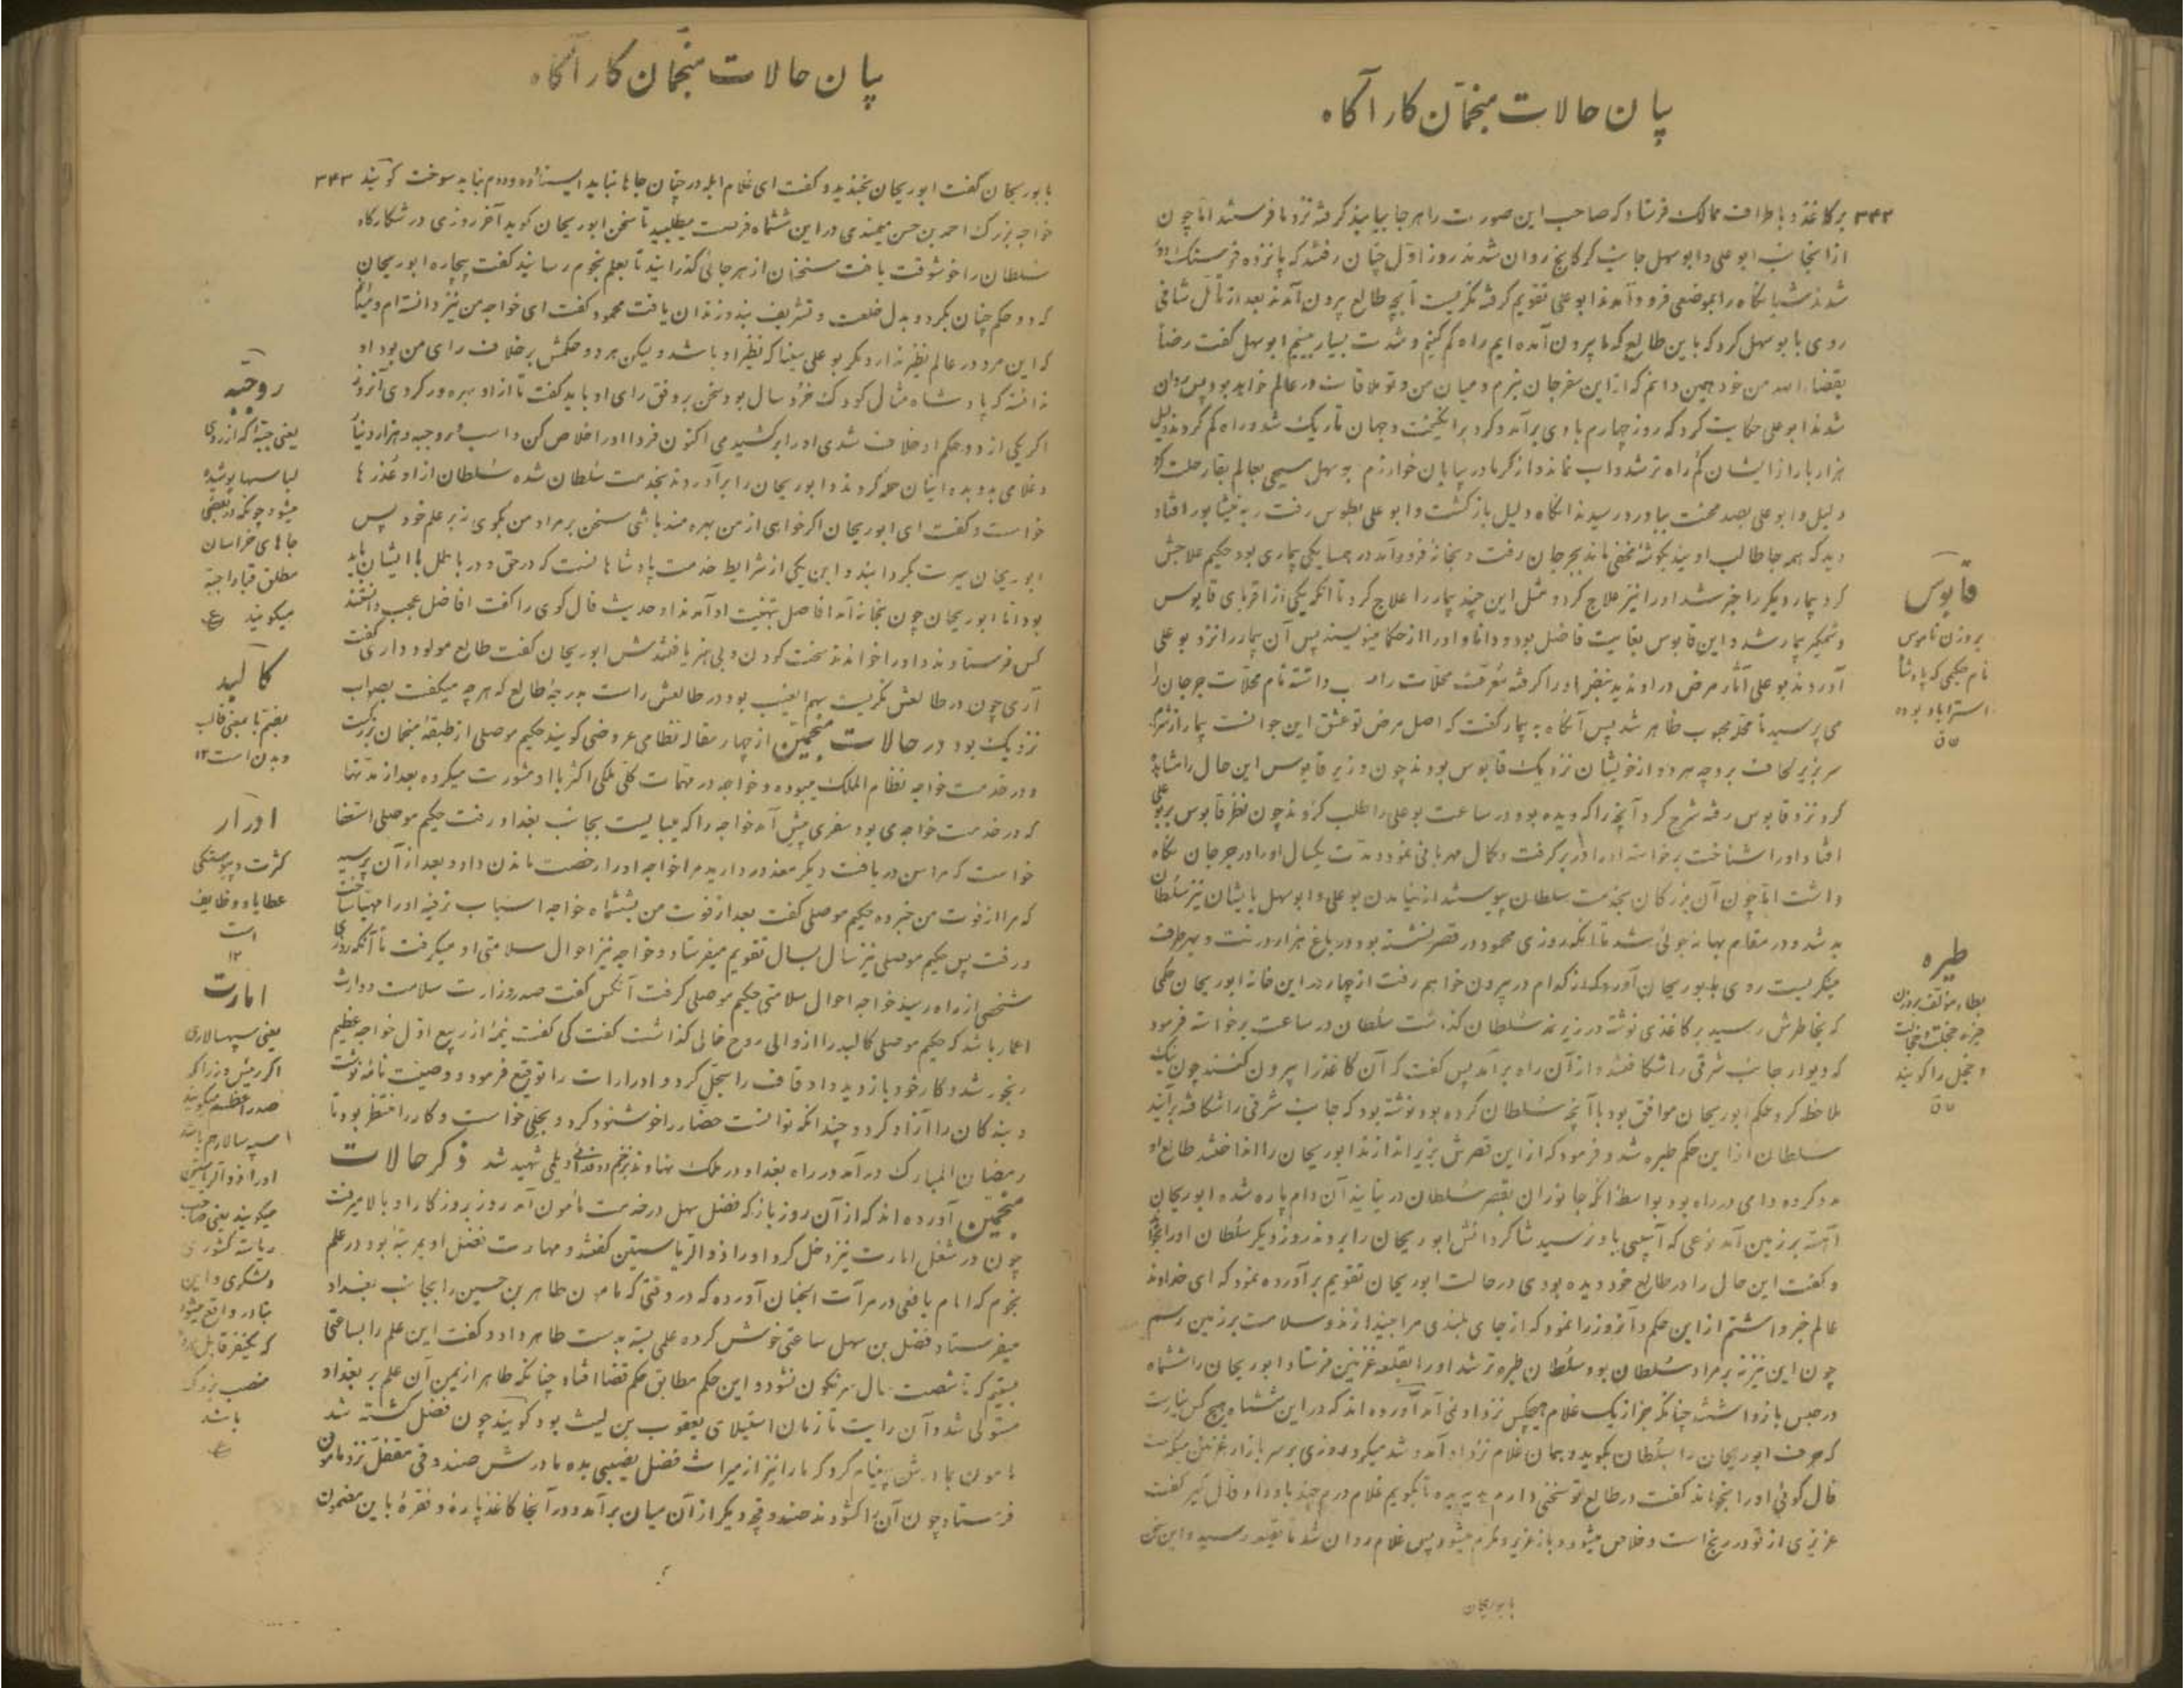 بیان حالات منجمان کارآگاه
۳۴۲ بر کاغذ و باطراف ممالک فرستاد که صاحب این صورت را هر جا بیابید گرفته نزد ما فرستید اما چون
از انجانب ابو علی و ابو سهل جانب کرکانج روان شدند روز اول چنان رفتند که پانزده فرسنگ دور
شدند شبانگاه را بموضعی فرود آمدند ابو علی تقویم گرفته نگریست تا بچه طالع بیرون آمدند بعد از تأمل شافی
روی با بو سهل کرد که باین طالع که ما بیرون آمده ایم راه کم کنیم و شدت بسیار بینیم ابو سهل گفت رضأ
بقضاء الله من خود همین دانم که از این سفر جان نبرم و میان من و تو ملاقات در عالم خواهد بود پس روان
شدند ابو علی حکایت کرد که روز چهارم بادی برآمد و گرد برانگیخت و جهان تاریک شد و راه کم کردند دلیل
هزار بار از ایشان کم راه تر شد و اب نماند و از گرما در بیابان خوارزم بو سهل مسیحی بعالم بقا رحلت کرد
دلیل و ابو علی بصد محنت بباورد رسیدند انگاه دلیل بازگشت و ابو علی بطوس رفت و به نیشابور افتاد
دید که همه جا طالب اویند بگوشهٔ مخفی ماند بجرجان رفت و بخانه فرود آمد در همسایگی بیماری بود حکیم علاجش
کرد بیمار دیگر را خبر شد او را نیز علاج کرد و مثل این چند بیمار را علاج کرد تا آنکه یکی از اقربای قابوس
وشمگیر بیمار شد و این قابوس بغایت فاضل بود و دانا و او را از حکما مینویسند پس آن بیمار را نزد بو علی
آوردند بو علی آثار مرض در او ندید نبض او را گرفته معرفت محلات را میداشته نام محلات جرجان را
می پرسید تا محلهٔ محبوب ظاهر شد پس آنگاه به بیمار گفت که اصل مرض تو عشق این جوانست بیمار از شرم
سر بزیر لحاف برد چه هر دو از خویشان نزدیک قابوس بودند چون وزیر قابوس این حال را مشاهده
کرد نزد قابوس رفته شرح کرد آنچه را که دیده بود در ساعت بو علی را طلب کردند چون نظر قابوس بر بو علی
افتاد او را شناخت برخواسته او را در بر گرفت و کمال مهربانی نمود و مدت یکسال او را در جرجان نگاه
داشت اما چون آن بزرگان بخدمت سلطان پیوستند از نیامدن بو علی و ابو سهل با یشان نیز سلطان
بد شد و در مقام بهانه جوئی شد تا آنکه روزی محمود در قصر نشسته بود در باغ هزار درخت و بهر طرف
مینگریست روی بابوریحان آورد که از کدام در بیرون خواهم رفت از چهار در این خانه ابوریحان حکمی
که بخاطرش رسید بر کاغذی نوشته در زیر نهد سلطان گذاشت سلطان در ساعت برخواسته فرمود
که دیوار جانب شرقی را شکافتند و از آن راه بر آمد پس گفت که آن کاغذ را بیرون کنند چون نیک
ملاحظه کرد حکم ابوریحان موافق بود با آنچه سلطان کرده بود و نوشته بود که جانب شرقی را شکافته برآیند
سلطان از این حکم طیره شد و فرمود که از این قصرش بزیر اندازند ابوریحان را انداختند طالع او
مدد کرده دامی در راه بود بواسطهٔ آنکه جانوران بقصر سلطان در نیایند آن دام پاره شده ابوریحان
آهسته بر زمین آمد نوعی که آسیبی باو نرسید شاگردانش ابوریحان را بردند روز دیگر سلطان او را بخواند
و گفت این حال را در طالع خود دیده بودی در حالت ابوریحان تقویم برآورده نمود که ای خداوند
عالم خبر داشتم از این حکم و آنروز را نمود که از جای بلندی مرا بیندازند و سلامت بر زمین رسم
چون این نیز نه بر مراد سلطان بود سلطان طیره تر شد او را بقلعه غزنین فرستاد ابوریحان را ششماه
در حبس بازداشتند چنانکه جز از یک غلام هیچکس نزد او نمی آمد آورده اند که در این ششماه هیچ کس نیارست
که حرف ابوریحان را بسلطان بگوید و همان غلام نزد او آمد و شد میکرد روزی بر سر بازار غزنین میگذشت
فال گوئی او را بخواند گفت در طالع تو سخنی دارم هدیه بده تا بگویم غلام درم چند باو داد و فال گیر گفت
عزیزی از تو در رنج است و خلاص میشود و باز عزیز و مکرم میشود پس غلام روان شد تا بقلعه رسید و این سخن
بابوریحان
قابوس
بروزن ناموس
نام حکیمی که پادشا
استراباد بوده
ق ن
طیره
بطاء مؤلف بروزن
خیره خجلت و خجالت
و خجل را گویند
ق ن
بیان حالات منجمان کارآگاه
بابوریحان گفت ابوریحان بخندید و گفت ای غلام ابله در چنان جاها نباید ایستاد و درم نباید سوخت گویند ۳۴۳
خواجه بزرگ احمد بن حسن میمندی در این ششماه فرصت میطلبید تا سخن ابوریحان گوید آخر روزی در شکارگاه
سلطان را خوشوقت یافت سخنان از هر جائی گذرانید تا بعلم نجوم رسانید گفت بیچاره ابوریحان
که دو حکم چنان بکرد و بدل خلعت و تشریف بند و زندان یافت محمود گفت ای خواجه من نیز دانسته ام و میگویم
که این مرد در عالم نظیر ندارد مگر بو علی سینا که نظیر او باشد و لیکن هر دو حکمش بر خلاف رای من بود او
ندانست که پادشاه مثال کودک خرد سال بود سخن بر وفق رای او باید گفت تا از او بهره ور گردی آنروز
اگر یکی از دو حکم او خلاف شدی او را بر کشیدمی اکنون فردا او را خلاص کن و اسب و روجبه و هزار دینار
و غلامی بدو بده اینان حمد کردند و ابوریحان را برآوردند بخدمت سلطان شده سلطان از او عذرها
خواست و گفت ای ابوریحان اگر خواهی از من بهره مند باشی سخن بر مراد من بگوی نه بر علم خود پس
ابوریحان سیرت بگردانید و این یکی از شرایط خدمت پادشاهانست که در حق و در باطل با ایشان باید
بود اما ابوریحان چون بخانه آمد افاضل بتهنیت او آمدند او حدیث فال گوی را گفت افاضل عجب دانستند
کس فرستادند و او را خواندند سخت کودن و بی هنر یافتندش ابوریحان گفت طالع مولود داری گفت
آری چون در طالعش نگریست سهم الغیب بود در طالعش راست بدرجهٔ طالع که هر چه میگفت بصواب
نزدیک بود در حالات منجمین از چهار مقاله نظامی عروضی گویند حکیم موصلی از طبقه منجمان بزرگست
و در خدمت خواجه نظام الملک میبوده و خواجه در مهمات کلی ملکی اکثر با او مشورت میکرده بعد از مدتها
که در خدمت خواجه می بود سفری پیش آمد خواجه را که میبایست بجانب بغداد رفت حکیم موصلی استعفا
خواست که مرا سن دریافت دیگر معذور دارید مرا خواجه او را رخصت ماندن داد و بعد از آن پرسید
که مرا از فوت من خبر ده حکیم موصلی گفت بعد از فوت من بششماه خواجه اسباب ترفیه او را مهیا ساخت
و رفت پس حکیم موصلی نیز سال بسال تقویم میفرستاد و خواجه نیز احوال سلامتی او میگرفت تا آنکه روزی
شخصی از راه رسید خواجه احوال سلامتی حکیم موصلی گرفت آنکس گفت صدر وزارت سلامت و وارث
اعمار باشد که حکیم موصلی کالبد را از والی روح خالی گذاشت گفت کی گفت نیمهٔ از ربیع اول خواجه عظیم
رنجور شد و کار خود بازدید و اوقاف را سجل کرد و ادرارات را توقیع فرمود و وصیت نامه نوشت
و بندگان را آزاد کرد و چندانکه توانست حضار را خوشنود کرد و بحلی خواست و کار را منتظر بود تا
رمضان المبارک درآمد در راه بغداد در ملک نهاوند بزخم دو فدائی دیلمی شهید شد ذکر حالات
منجمین آورده اند که از آن روز باز که فضل سهل در خدمت مأمون آمد روز بروز کار او بالا میرفت
چون در شغل امارت نیز دخل کرد او را ذو الریاستین گفتند و مهارت فضل او بمرتبهٔ بود در علم
نجوم که امام یافعی در مرآت الجنان آورده که در وقتی که مامون طاهر بن حسین را بجانب بغداد
میفرستاد فضل بن سهل ساعتی خوش کرده علمی بسته بدست طاهر داد و گفت این علم را بساعتی
بستم که تا شصت سال سرنگون نشود و این حکم مطابق حکم قضا افتاد چنانکه طاهر از یمن آن علم بر بغداد
مستولی شد و آن رایت تا زمان استیلای یعقوب بن لیث بود گویند چون فضل کشته شد
مامون بمادرش پیغام کرد که ما را نیز از میراث فضل نصیبی بده مادرش صندوقی مقفل نزد مامون
فرستاد چون آن را گشودند صندوقچه دیگر از آن میان برآمد و در آنجا کاغذ پارهٔ و نقرهٔ باین مضمون
روجبه
یعنی جبه که از روی
لباسها پوشیده
میشود چونکه در بعضی
جاهای خراسان
مطلق قبا را جبه
میگویند
کالبد
بضم با بمعنی قالب
و بدن است ۱۲
ادرار
کثرت و پیوستگی
عطایا و وظایف
است
۱۲
امارت
یعنی سپهسالاری
اگر رئیس وزرا که
صدر اعظم میگویند
اسپه سالار هم باشد
او را ذو الریاستین
میگویند یعنی صاحب
ریاسته کشوری
و لشکری و این
بنادر واقع میشود
که یکنفر قابل دو
منصب بزرگ
باشد